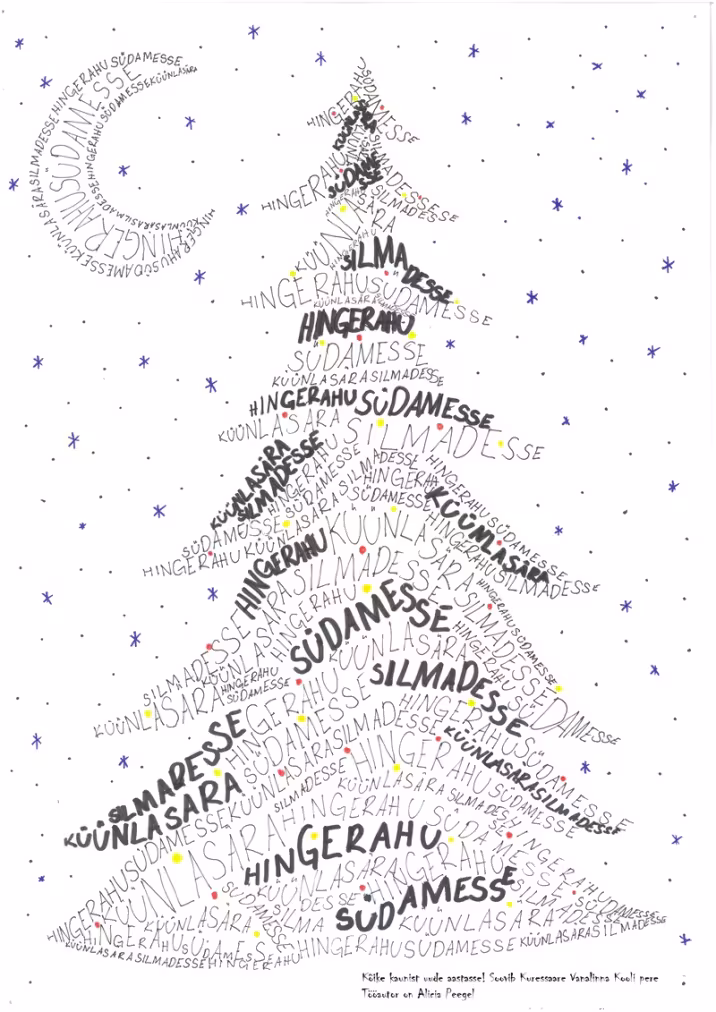 HINGERAHU SÜDAMESSE
KÜÜNLASÄRA SILMADESSE HINGERAHU SÜDAMESSE
HINGERAHU SÜDAMESSE
HINGERAHU SILMADESSE HINGERAHU SÜDAMESSE KÜÜNLASÄRA
HINGERAHU SÜDAMESSE KÜÜNLASÄRA
HINGERAHU
SÜDAMESSE
KÜÜNLASÄRA
HINGERAHU
SÜDAMESSE
SILMADESSE
KÜÜNLASÄRA
SILMADESSE
HINGERAHU SÜDAMESSE
KÜÜNLASÄRA
HINGERAHU
SÜDAMESSE
KÜÜNLASÄRA SILMADESSE
HINGERAHU SÜDAMESSE
KÜÜNLASÄRA SILMADESSE
KÜÜNLASÄRA
SILMADESSE
HINGERAHU
SÜDAMESSE
HINGERAHU SÜDAMESSE
KÜÜNLASÄRA
HINGERAHU SILMADESSE
SÜDAMESSE
HINGERAHU KÜÜNLASÄRA SILMADESSE
HINGERAHU
KÜÜNLASÄRA
SILMADESSE
HINGERAHU SÜDAMESSE
SILMADESSE
HINGERAHU
SÜDAMESSE
SILMADESSE
KÜÜNLASÄRA
KÜÜNLASARA
HINGERAHU
SÜDAMESSE
SÜDAMESSE
SILMADESSE
HINGERAHU
SÜDAMESSE
HINGERAHU SÜDAMESSE
SILMADESSE
KÜÜNLASARA
KÜÜNLASARASILMADESSE
SÜDAMESSE KÜÜNLASARASILMADESSE
HINGERAHU SÜDAMESSE
SILMADESSE
KÜÜNLASARA SILMADESSE HINGERAHU SÜDAMESSE
HINGERAHU SÜDAMESSE
KÜÜNLASÄRA HINGERAHU SÜDAMESSE
HINGERAHU
SÜDAMESSE
KÜÜNLASÄRA HINGERAHU
SILMADESSE
SÜDAMESSE
KÜÜNLASARA
KÜÜNLASARA SILMADESSE
HINGERAHU SÜDAMESSE
HINGERAHU SÜDAMESSE KÜÜNLASARA SILMADESSE
KÜÜNLASARA SILMADESSE HINGERAHU
Kõike kaunist uude aastasse! Soovib Kuressaare Vanalinna Kooli pere
Tööautor on Alicia Peegel